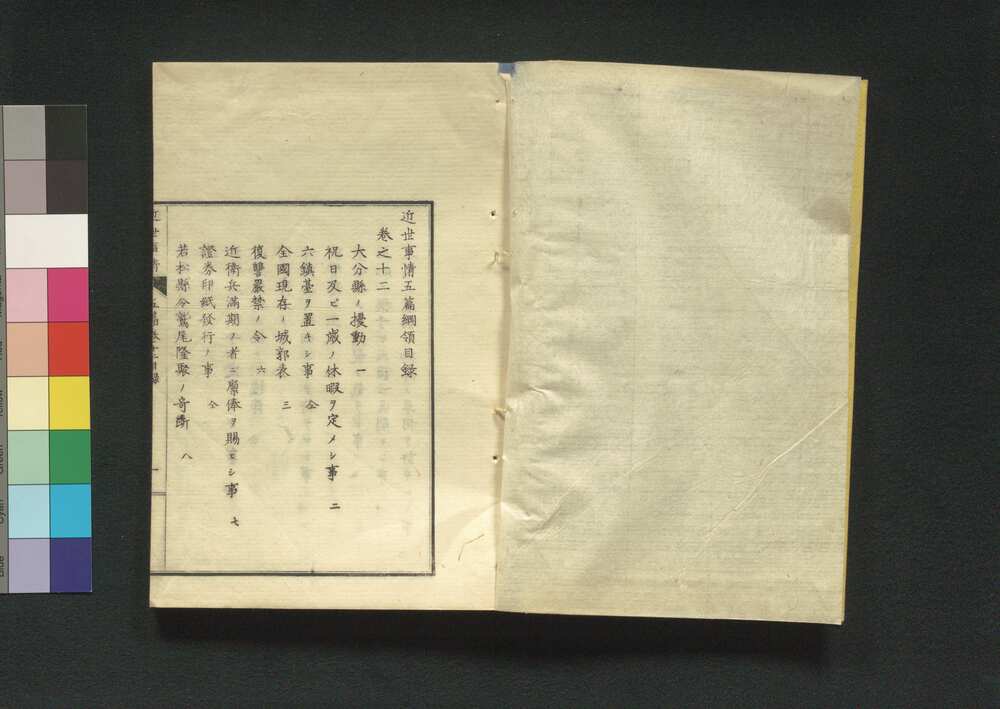 近世事情五篇綱領目錄
卷之十二
大分縣ノ擾動 一
祝日及ビ一歲ノ休暇ヲ定メシ事 二
六鎮臺ヲ置キシ事 仝
全國現存ノ城郭表 三
復讐嚴禁ノ令 六
近衛兵滿期ノ者ニ厚俸ヲ賜ヒシ事 七
證券印紙發行ノ事 仝
若松縣令鷲尾隆聚ノ奇斷 八
近世事情 五篇卷十二目錄 一